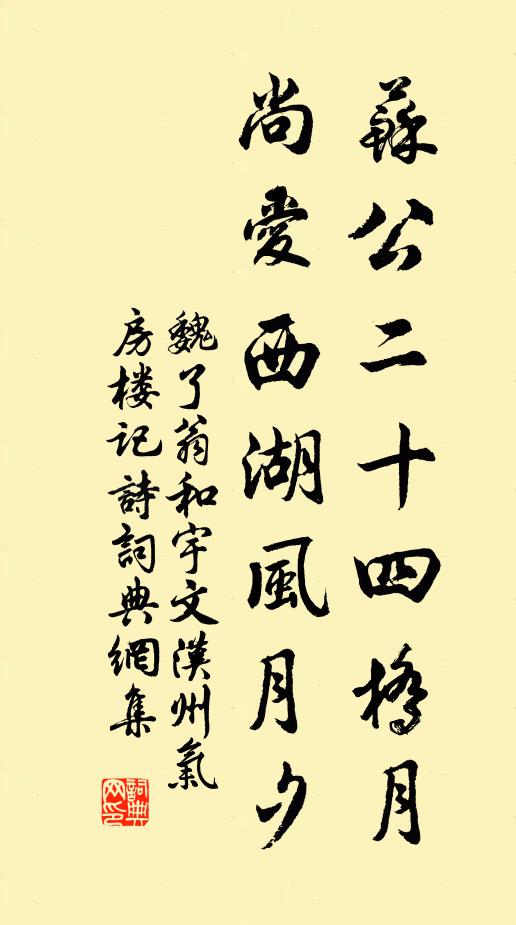 蘇公二十四橋月
尚愛西湖風月夕
魏了翁和宇文漢州氣
房楼记詩詞典網集
詞典
网印